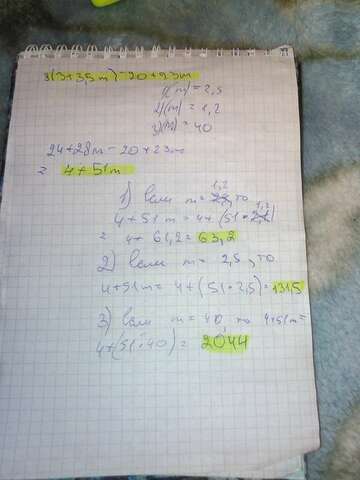 8(3+3,5m)-20+23m
1)(m)=2,5
2)(m)=1,2
3)(m)=40
24+28m-20+23m
= 4+51m
1) если m= 1,2, то
4+51m=4+(51·1,2)
= 4+61,2=63,2
2) если m= 2,5, то
4+51m= 4+(51·2,5)=131,5
3) если m=40, то 4+51m=
4+(51·40)= 2044